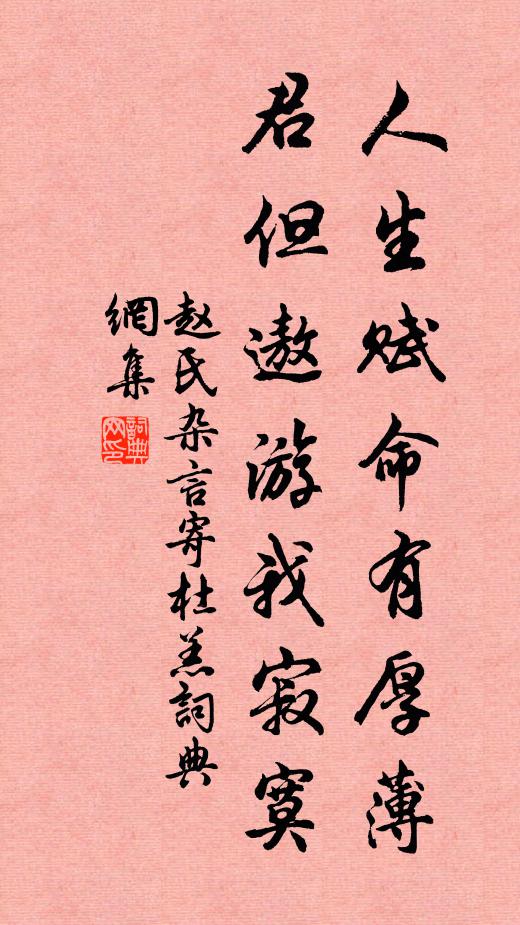 人生赋命有厚薄
君但遨游我寂寞
赵氏杂言寄杜羔詞典
網集
詞典
网印